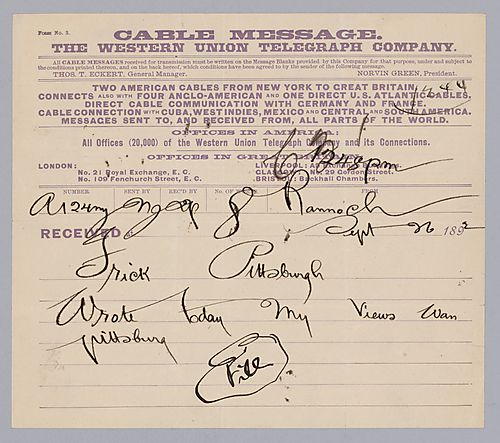 FORM No. 2.
CABLE MESSAGE.
THE WESTERN UNION TELEGRAPH COMPANY.
All CABLE MESSAGES received for transmission must be written on the Message Blanks provided by this Company for that purpose, under and subject to
the conditions printed thereon, and on the back hereof, which conditions have been agreed to by the sender of the following message.
THOS. T. ECKERT, General Manager. NORVIN GREEN, President.
TWO AMERICAN CABLES FROM NEW YORK TO GREAT BRITAIN.
CONNECTS ALSO WITH FOUR ANGLO-AMERICAN AND ONE DIRECT U.S. ATLANTIC CABLES.
DIRECT CABLE COMMUNICATION WITH GERMANY AND FRANCE.
CABLE CONNECTION WITH CUBA, WEST INDIES, MEXICO AND CENTRAL AND SOUTH AMERICA.
MESSAGES SENT TO, AND RECEIVED FROM, ALL PARTS OF THE WORLD.
OFFICES IN AMERICA:
All Offices (20,000) of the Western Union Telegraph Company and its Connections.
OFFICES IN GREAT
LONDON: LIVERPOOL:
No. 21 Royal Exchange, E. C. No. 29 Gordon Street.
No. 109 Fenchurch Street, E. C. BRISTOL: Backhall Chambers.
NUMBER SENT BY REC'D BY No. OF FROM
8 Rannoch
RECEIVED at Sept 26 1892
Frick Pittsburgh
Wrote today My Views Wan
pittsburg
File